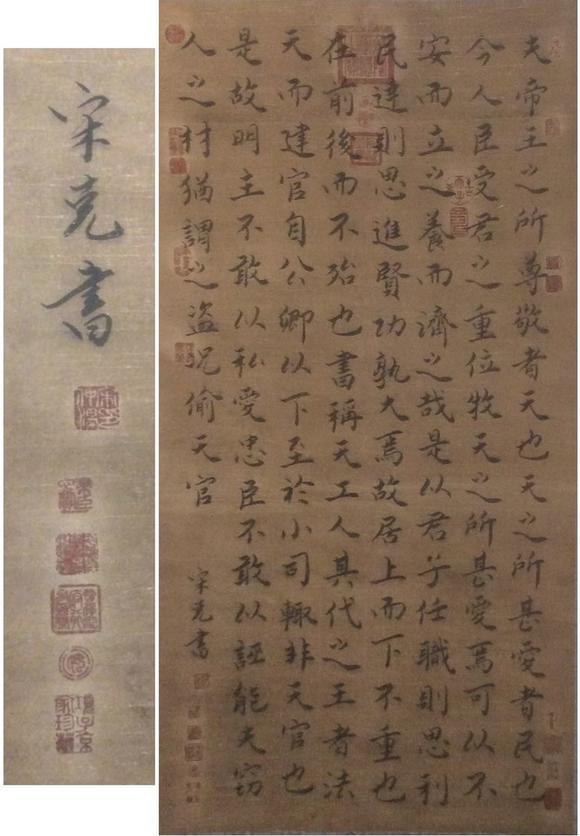 夫帝王之所尊敬者天也天之所甚愛者民也
今人臣受君之重位牧天之所甚愛焉可以不
安而立之養而濟之哉是以君子任職則思利
民達則思進賢功孰大焉故居上而下不重也
在前後而不殆也書稱天工人其代之王者法
天而建官自公卿以下至於小司輒非天官也
是故明主不敢以私愛忠臣不敢以誣能夫窃
人之材猶謂之盜況偷天官
宋克書
宋克書
項子京家珍藏